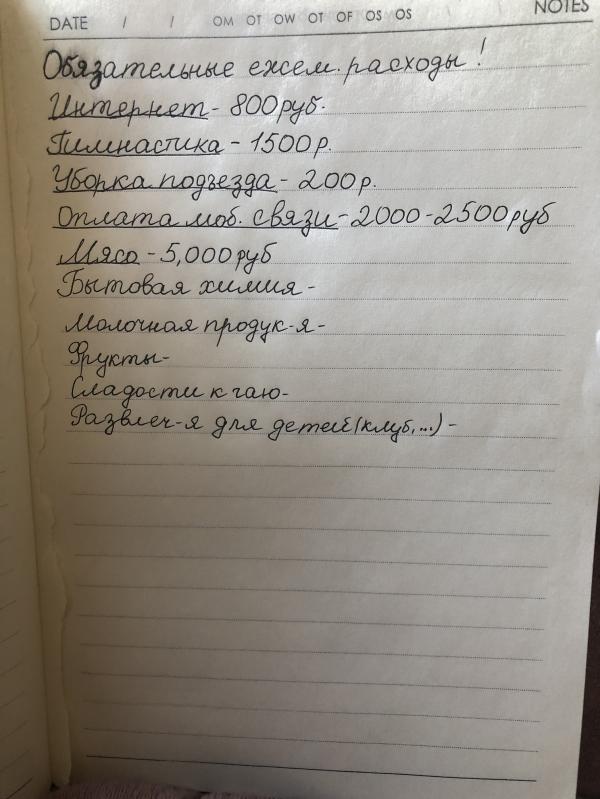 DATE / / OM OT OW OT OF OS OS NOTES
Обязательные ежем. расходы!
Интернет - 800руб.
Гимнастика - 1500р.
Уборка подъезда - 200р.
Оплата моб. связи - 2000-2500руб
Мясо - 5,000руб
Бытовая химия -
Молочная продук-я -
Фрукты-
Сладости к чаю-
Развлеч-я для детей(клуб,...) -